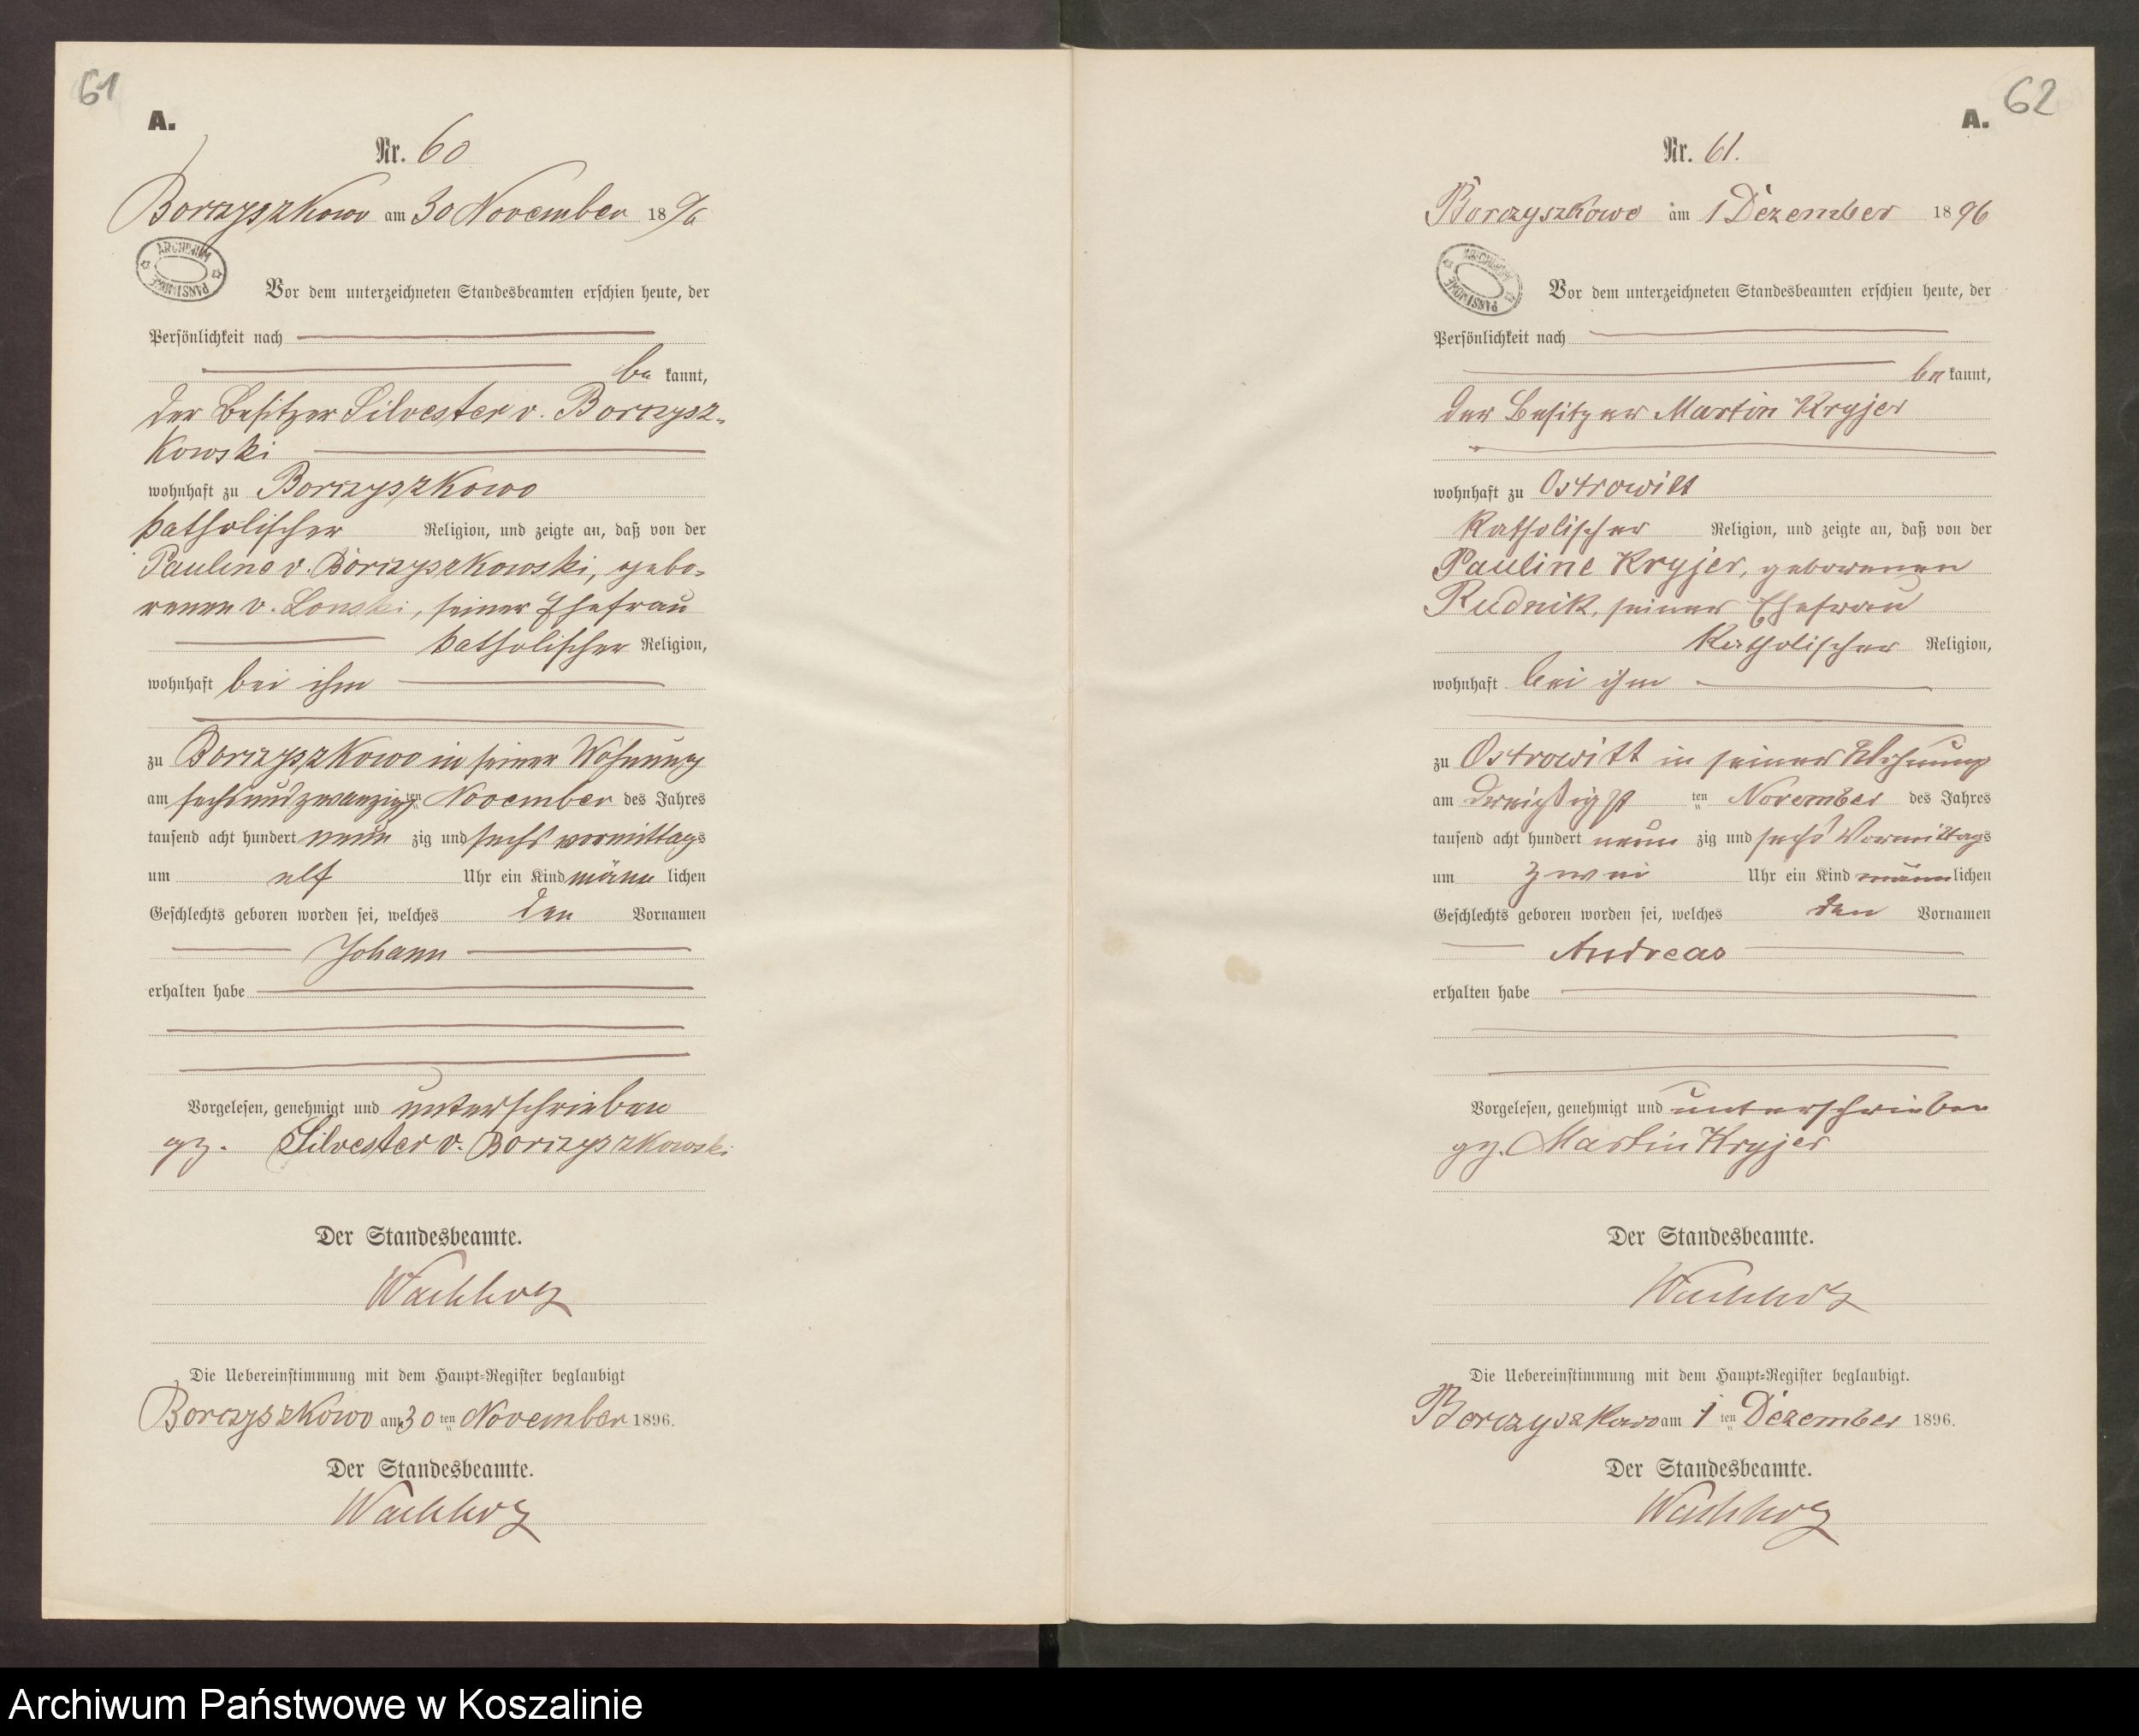 61
A.
Nr. 60
Borczyszkowo am 30 November 1896
ARCHIWUM PAŃSTWOWE
Vor dem unterzeichneten Standesbeamten erschien heute, der
Persönlichkeit nach
be kannt,
der Besitzer Silvester v. Borczysz-
kowski
wohnhaft zu Borczyszkowo
katholischer Religion, und zeigte an, daß von der
Pauline v. Borczyszkowski, gebo-
renen v. Lonski, seiner Ehefrau
katholischer Religion,
wohnhaft bei ihm
zu Borczyszkowo in seiner Wohnung
am sechsundzwanzigsten November des Jahres
tausend acht hundert neun zig und sechs vormittags
um elf Uhr ein Kind männ lichen
Geschlechts geboren worden sei, welches den Vornamen
Johann
erhalten habe
Vorgelesen, genehmigt und unterschrieben
gz. Silvester v. Borczyszkowski
Der Standesbeamte.
Wachholz
Die Uebereinstimmung mit dem Haupt-Register beglaubigt
Borczyszkowo am 30 ten November 1896.
Der Standesbeamte.
Wachholz
62
A.
Nr. 61.
Borczyszkowo am 1 Dezember 1896
ARCHIWUM PAŃSTWOWE
Vor dem unterzeichneten Standesbeamten erschien heute, der
Persönlichkeit nach
be kannt,
der Besitzer Martin Kryjer
wohnhaft zu Ostrowitt
katholischer Religion, und zeigte an, daß von der
Pauline Kryjer, geborenen
Rudnik, seiner Ehefrau
katholischer Religion,
wohnhaft bei ihm
zu Ostrowitt in seiner Wohnung
am dreißigst ten November des Jahres
tausend acht hundert neun zig und sechs Vormittags
um zwei Uhr ein Kind männ lichen
Geschlechts geboren worden sei, welches den Vornamen
Andreas
erhalten habe
Vorgelesen, genehmigt und unterschrieben
gz. Martin Kryjer
Der Standesbeamte.
Wachholz
Die Uebereinstimmung mit dem Haupt-Register beglaubigt.
Borczyszkowo am 1 ten Dezember 1896.
Der Standesbeamte.
Wachholz
Archiwum Państwowe w Koszalinie